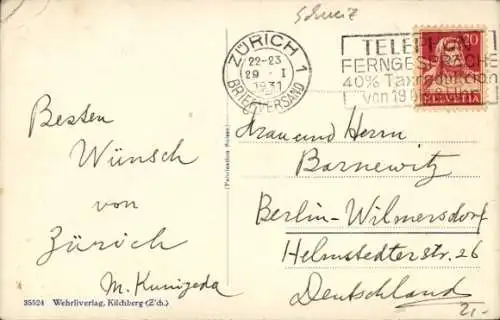 Schweiz
ZÜRICH 1
22-23
29. I
1931
BRIEFVERSAND
TELEFON
FERNGESPRÄCHE
40% Taxreduktion
von 19
20
HELVETIA
Besten
Wünsch
von
Zürich
M. Kunizeda
Frau und Herrn
Barnewitz
Berlin-Wilmersdorf
Helmstedterstr. 26
Deutschland
21.-
35524 Wehrliverlag, Kilchberg (Z'ch.)